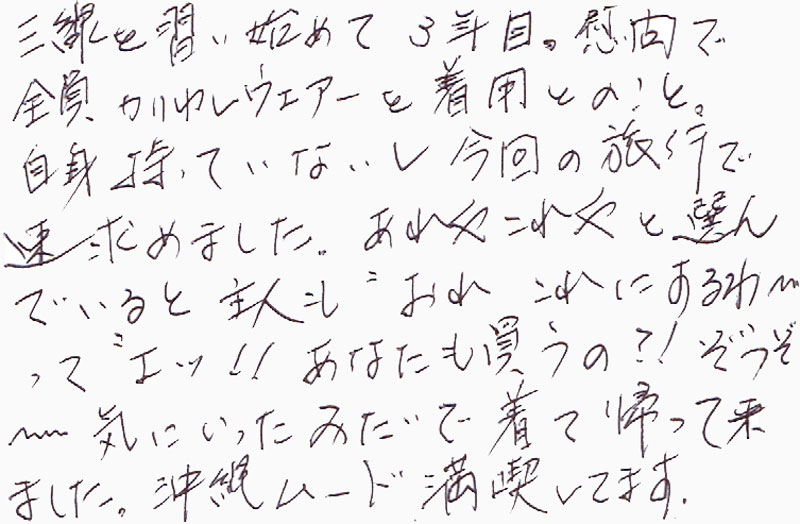 三線を習い始めて3年目。慰問で
全員かりゆしウェアーを着用とのこと。
自身持っていないし今回の旅行で
速求めました。あれやこれやと選ん
でいると主人も"おれ これにするわ〜
って"エッ!!あなたも買うの?!ぞっぞ
〜気にいったみたいで着て帰って来
ました。沖縄ムード満喫してます。